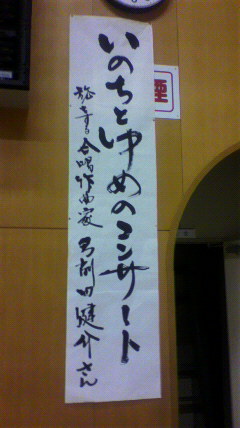 いのちとゆめのコンサート
旅する合唱作曲家 弓削田健介さん
煙